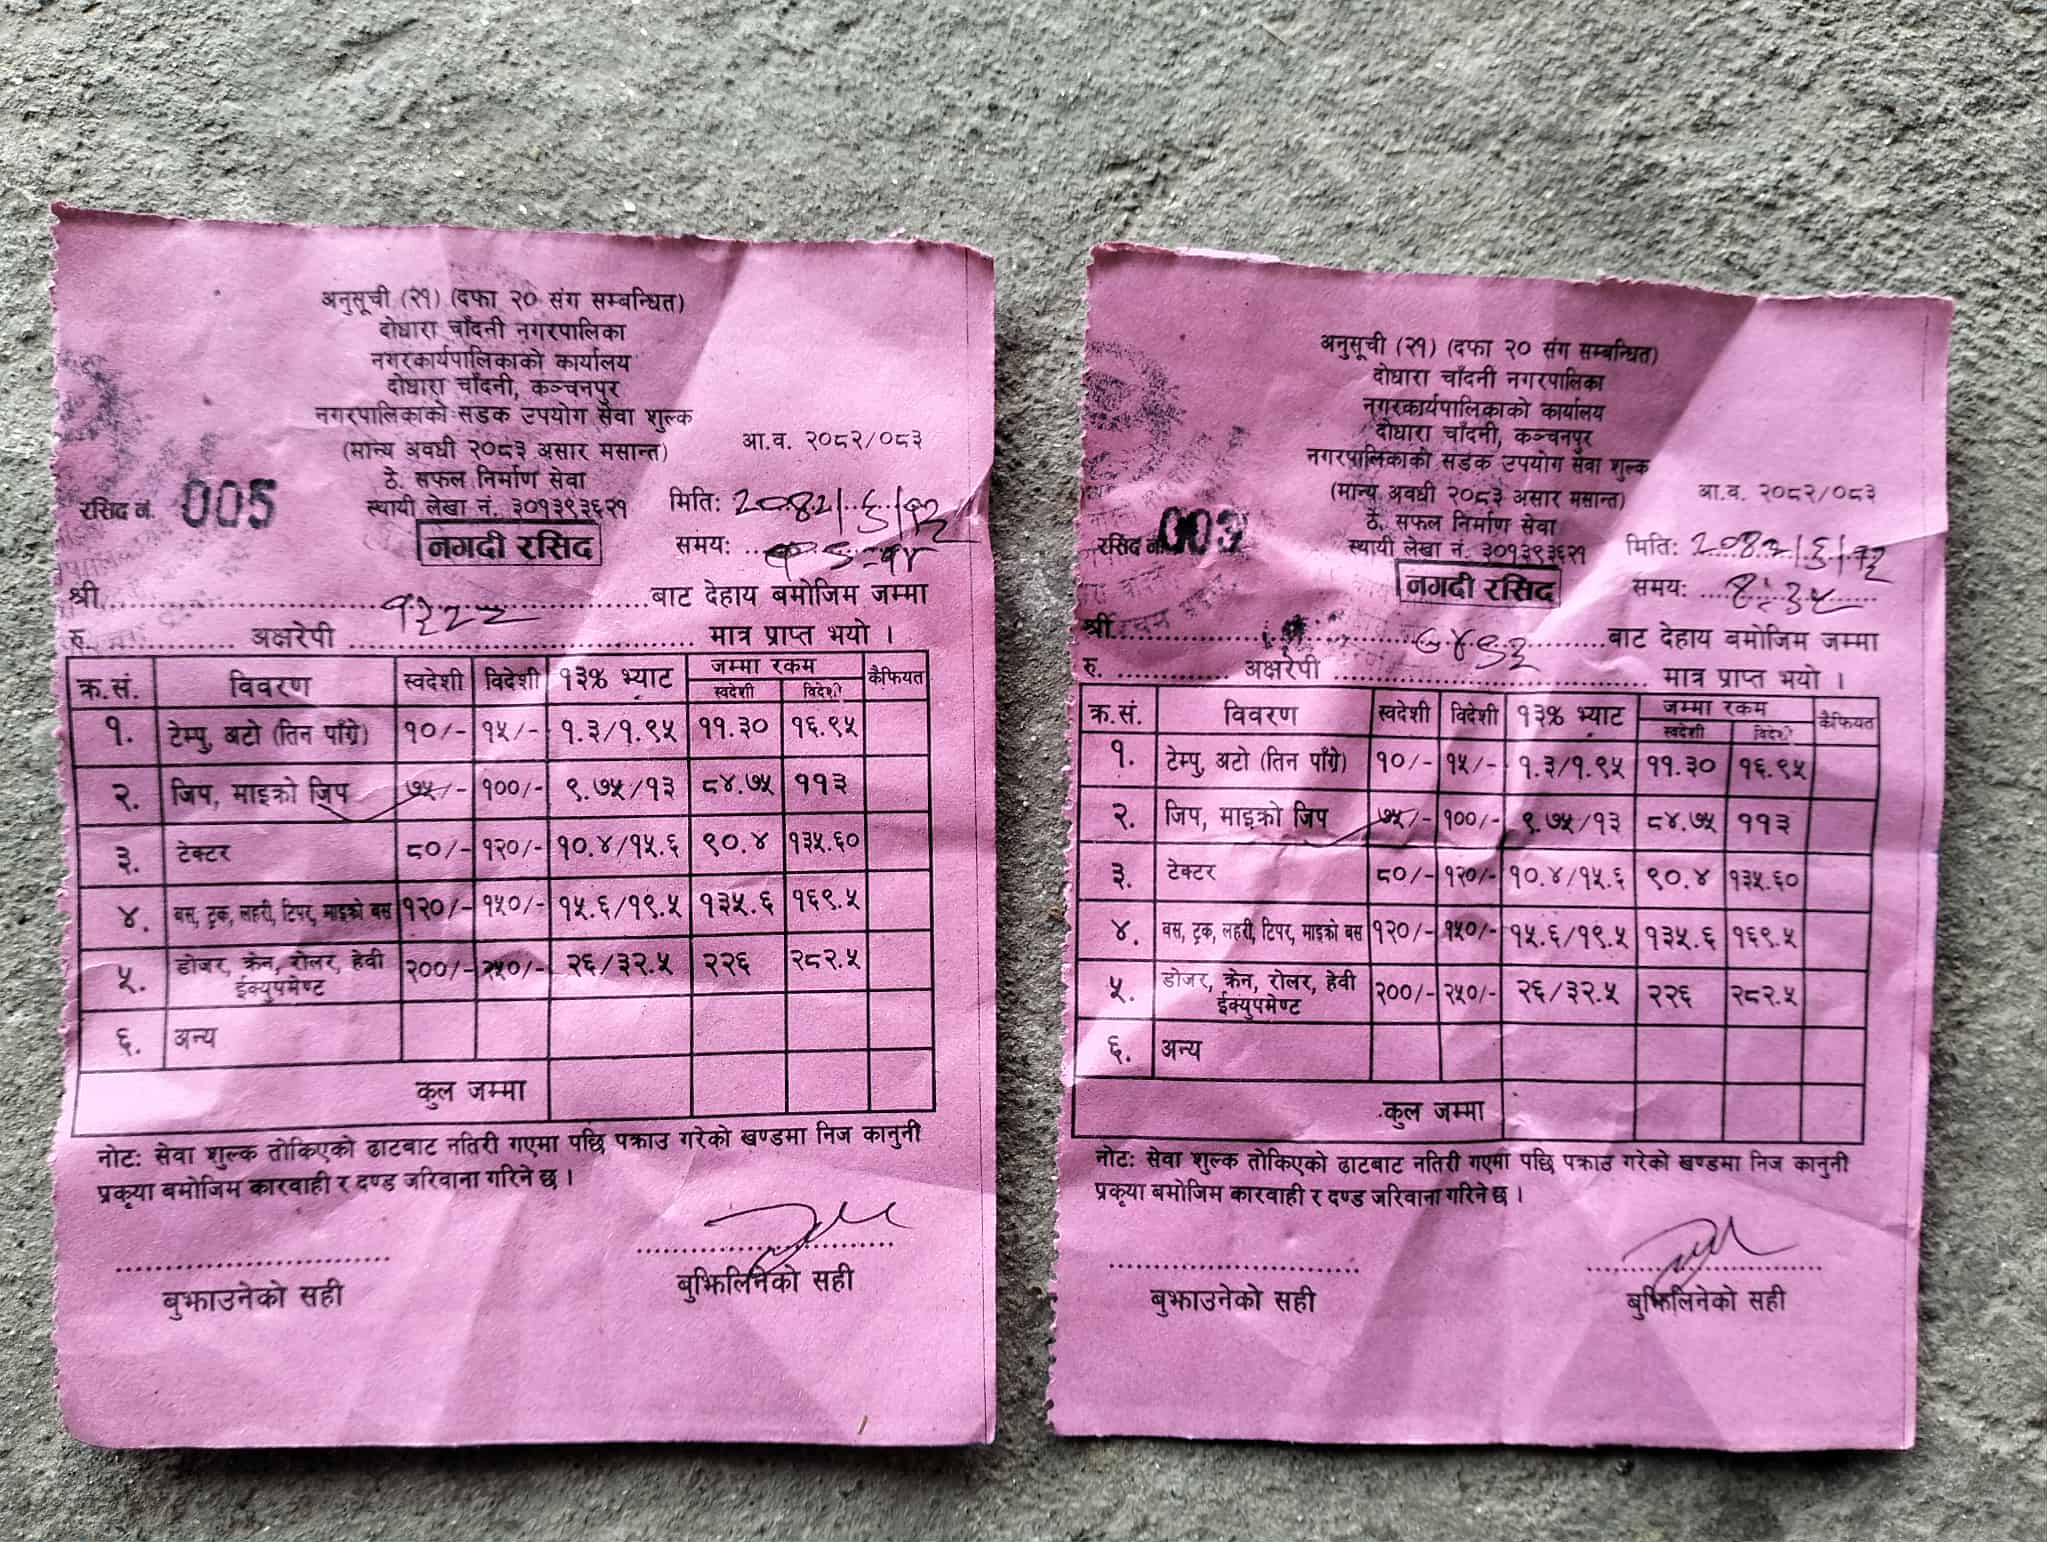 अनुसूची (२१) (दफा २० संग सम्बन्धित)
दोधारा चाँदनी नगरपालिका
नगरकार्यपालिकाको कार्यालय
दोधारा चाँदनी, कञ्चनपुर
नगरपालिकाको सडक उपयोग सेवा शुल्क
(मान्य अवधी २०८३ असार मसान्त) आ.व. २०८२/०८३
ठे. सफल निर्माण सेवा
रसिद नं. 005 स्थायी लेखा नं. ३०१३९३६२१ मिति:
नगदी रसिद समय:
श्री बाट देहाय बमोजिम जम्मा
रु. अक्षरेपी मात्र प्राप्त भयो ।
क्र.सं. विवरण स्वदेशी विदेशी १३% भ्याट जम्मा रकम कैफियत
स्वदेशी विदेशी
१. टेम्पु, अटो (तिन पाँग्रे) १०/- १५/- १.३/१.९५ ११.३० १६.९५
२. जिप, माइक्रो जिप ७५/- १००/- ९.७५/१३ ८४.७५ ११३
३. टेक्टर ८०/- १२०/- १०.४/१५.६ ९०.४ १३५.६०
४. बस, ट्रक, लहरी, टिपर, माइक्रो बस १२०/- १५०/- १५.६/१९.५ १३५.६ १६९.५
५. डोजर, क्रेन, रोलर, हेवी ईक्युपमेण्ट २००/- २५०/- २६/३२.५ २२६ २८२.५
६. अन्य
कुल जम्मा
नोट: सेवा शुल्क तोकिएको ढाटबाट नतिरी गएमा पछि पक्राउ गरेको खण्डमा निज कानुनी
प्रकृया बमोजिम कारवाही र दण्ड जरिवाना गरिने छ ।
बुझाउनेको सही बुझिलिनेको सही
अनुसूची (२१) (दफा २० संग सम्बन्धित)
दोधारा चाँदनी नगरपालिका
नगरकार्यपालिकाको कार्यालय
दोधारा चाँदनी, कञ्चनपुर
नगरपालिकाको सडक उपयोग सेवा शुल्क
(मान्य अवधी २०८३ असार मसान्त) आ.व. २०८२/०८३
ठे. सफल निर्माण सेवा
रसिद नं. 003 स्थायी लेखा नं. ३०१३९३६२१ मिति:
नगदी रसिद समय:
श्री बाट देहाय बमोजिम जम्मा
रु. अक्षरेपी मात्र प्राप्त भयो ।
क्र.सं. विवरण स्वदेशी विदेशी १३% भ्याट जम्मा रकम कैफियत
स्वदेशी विदेशी
१. टेम्पु, अटो (तिन पाँग्रे) १०/- १५/- १.३/१.९५ ११.३० १६.९५
२. जिप, माइक्रो जिप ७५/- १००/- ९.७५/१३ ८४.७५ ११३
३. टेक्टर ८०/- १२०/- १०.४/१५.६ ९०.४ १३५.६०
४. बस, ट्रक, लहरी, टिपर, माइक्रो बस १२०/- १५०/- १५.६/१९.५ १३५.६ १६९.५
५. डोजर, क्रेन, रोलर, हेवी ईक्युपमेण्ट २००/- २५०/- २६/३२.५ २२६ २८२.५
६. अन्य
कुल जम्मा
नोट: सेवा शुल्क तोकिएको ढाटबाट नतिरी गएमा पछि पक्राउ गरेको खण्डमा निज कानुनी
प्रकृया बमोजिम कारवाही र दण्ड जरिवाना गरिने छ ।
बुझाउनेको सही बुझिलिनेको सही